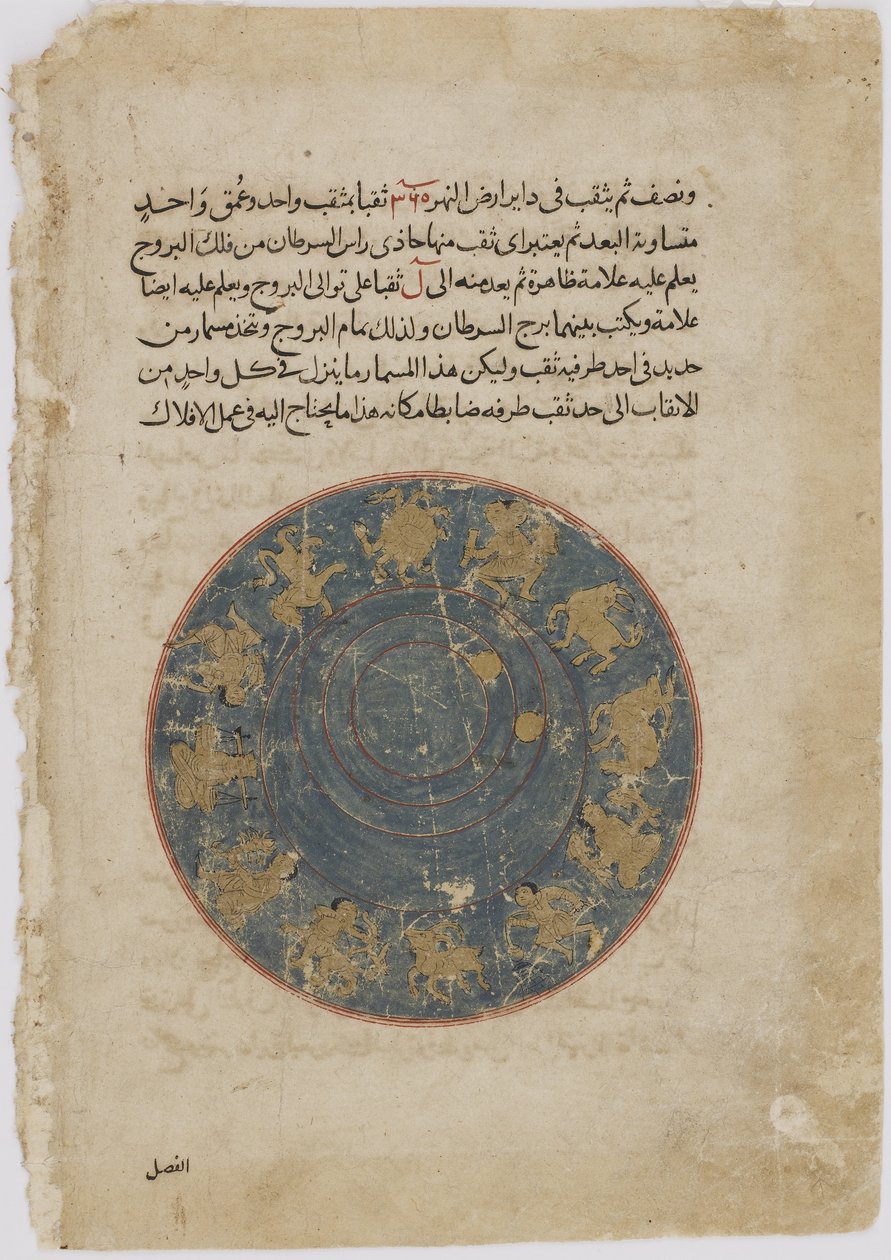 ونصف ثم يثقب في داير ارض النهر ٣٦٥ ثقبا بمثقب واحد وعُمق وَاحدٍ
متساوية البعد ثم يعتبر اى ثقب منها حاذى راس السرطان من فلك البروج
يعلم عليه علامة ظاهرة ثم يعد منه الى لَ ثقبا على توالى البروج ويعلم عليه ايضا
علامة ويكتب بينهما برج السرطان ولذلك تمام البروج ويتخذ مسمار من
حديد في احد طرفيه ثقب وليكن هذا المسمار ما ينزل في كل واحدٍ من
الاثقاب الى حد ثقب طرفه ضابطا مكانه هذا ما يحتاج اليه في عمل الافلاك
الفصل